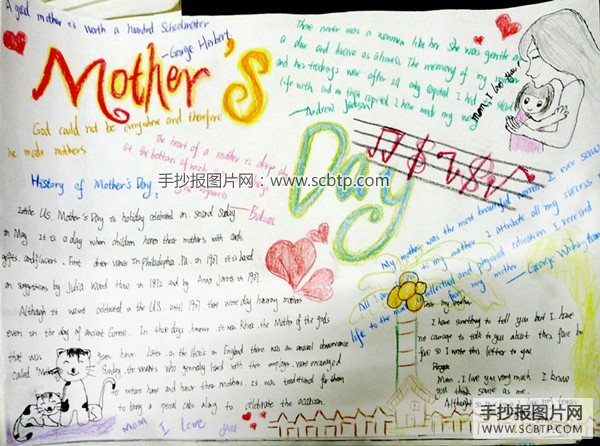 A good mother is worth a hundred Schoolmaster
-George Herbert
Mother's
Day
There never was a woman like her. She was gentle as
a
and
The memory of my mother
and her teachings were after all
capital I had to start
life with and on
capital I have made my way
-Andrew Jackson
mom, I love you
God could not be everywhere and therefore
he made mothers
The heart of a mother is a deep
at the bottom of which
-Balzac
手抄报图片网:www.scbtp.com
History of Mother's Day:
In the U.S. Mother's Day is holiday celebrated on second Sunday
in May. It is a day when children honor their mothers with cards
gifts, and flowers. First
in Philadelphia, PA. in 1907. it is based
on suggestions by Julia Ward Howe in 1872 and by Anna Jarvis in 1907.
Although it wasn't celebrated in the U.S. until 1907, there were day honoring mothers
even in the day of ancient Greece. In those days, however. it was Rhea, the Mother of the gods
that was
given honor. Later, in the
in England there was an annual observance
called "
Sunday, the servants who generally lived with their employers, were encouraged
to return home and honor their mothers. It was traditional for them
to bring a special cake along to celebrate the occasion.
My mother was the most beautiful woman I ever saw
All I
to my mother. I attribute all my success in
life to the moral,
intellectual and physical education I received
from my mother
-George Washington
Dear my mother
I have something to tell you but I have
no courage to talk to you about this face to
face so I write this letter to you
Mom, I love you very much. I know
you
same as me.
mom I love you
手抄报图片网
SCBTP.COM